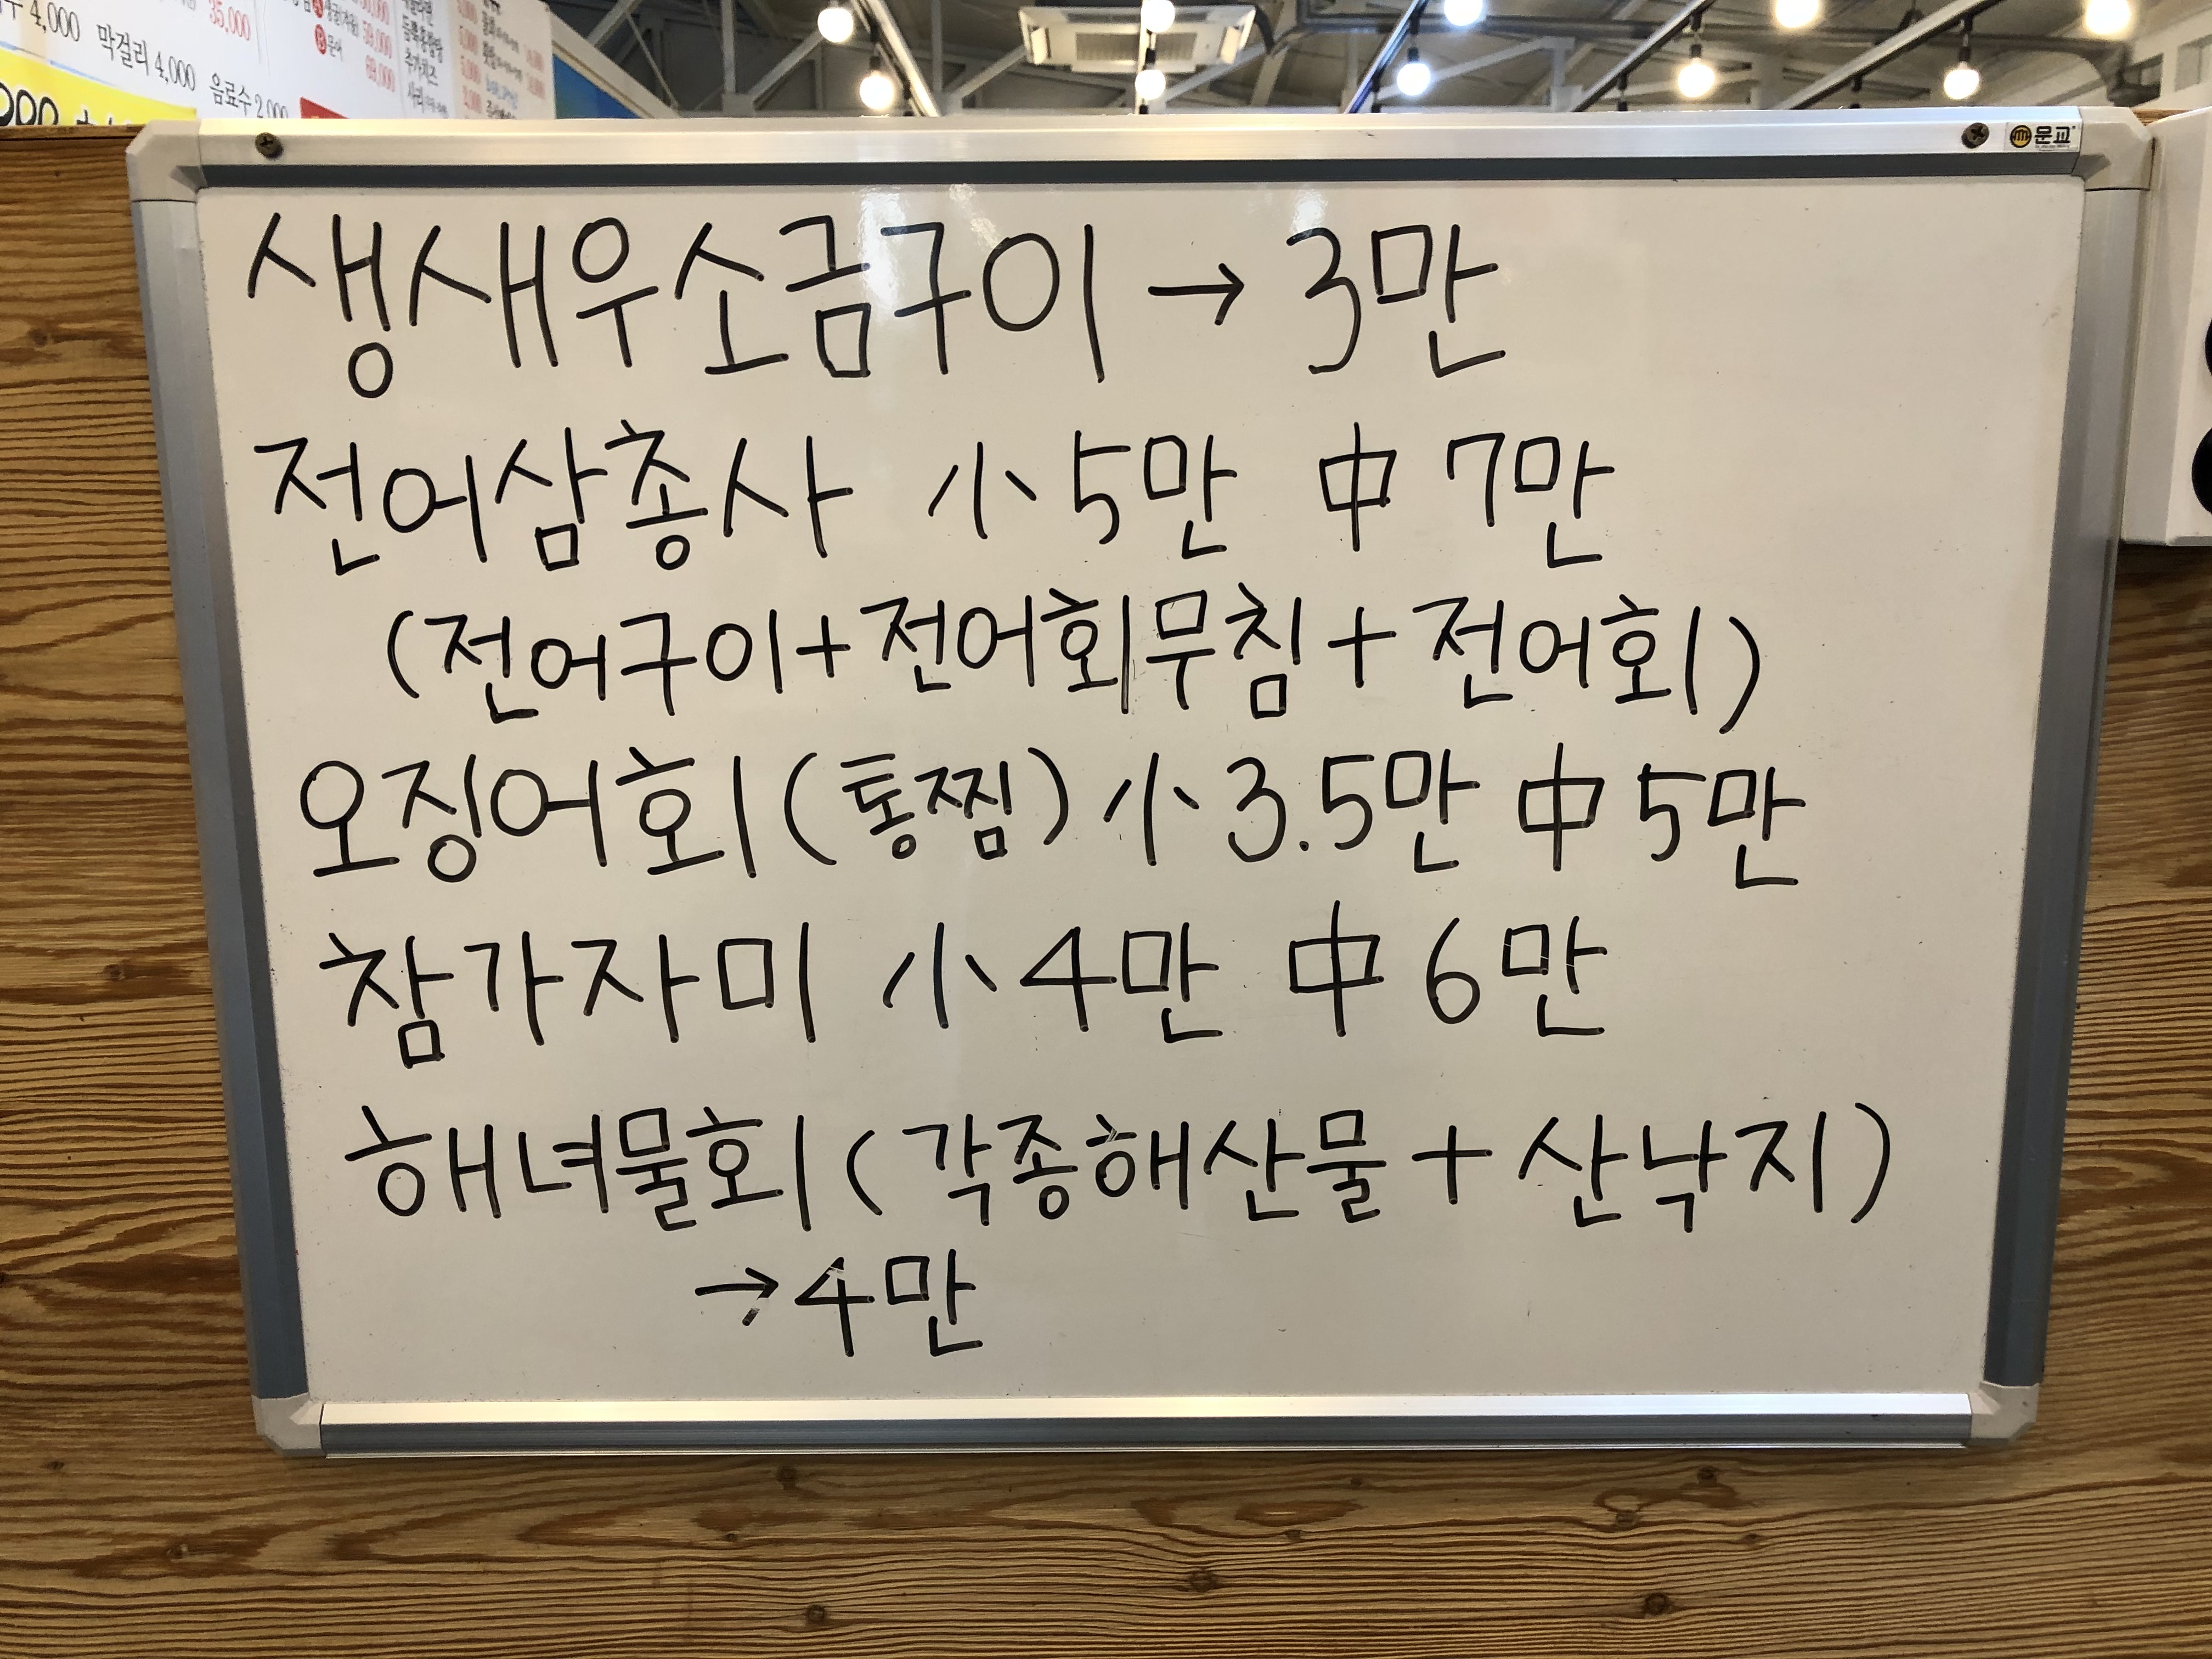 4,000 막걸리 4,000 음료수 2,000
35,000
59,000
문어
69,000
문교
생새우소금구이 → 3만
전어삼총사 小 5만 中 7만
(전어구이+전어회무침+전어회)
오징어회(통찜) 小 3.5만 中 5만
참가자미 小 4만 中 6만
해녀물회(각종해산물+산낙지)
→ 4만